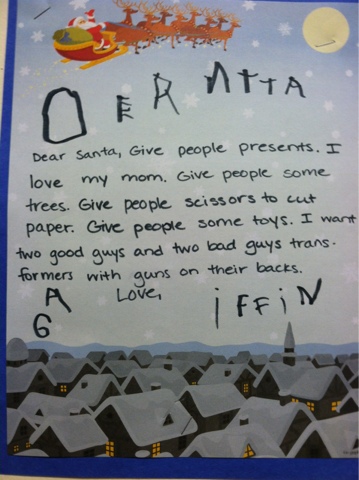 D E R N T T A
Dear Santa, Give people presents. I
love my mom. Give people some
trees. Give people scissors to cut
paper. Give people some toys. I want
two good guys and two bad guys trans-
formers with guns on their backs.
A Love, i F F i N
G